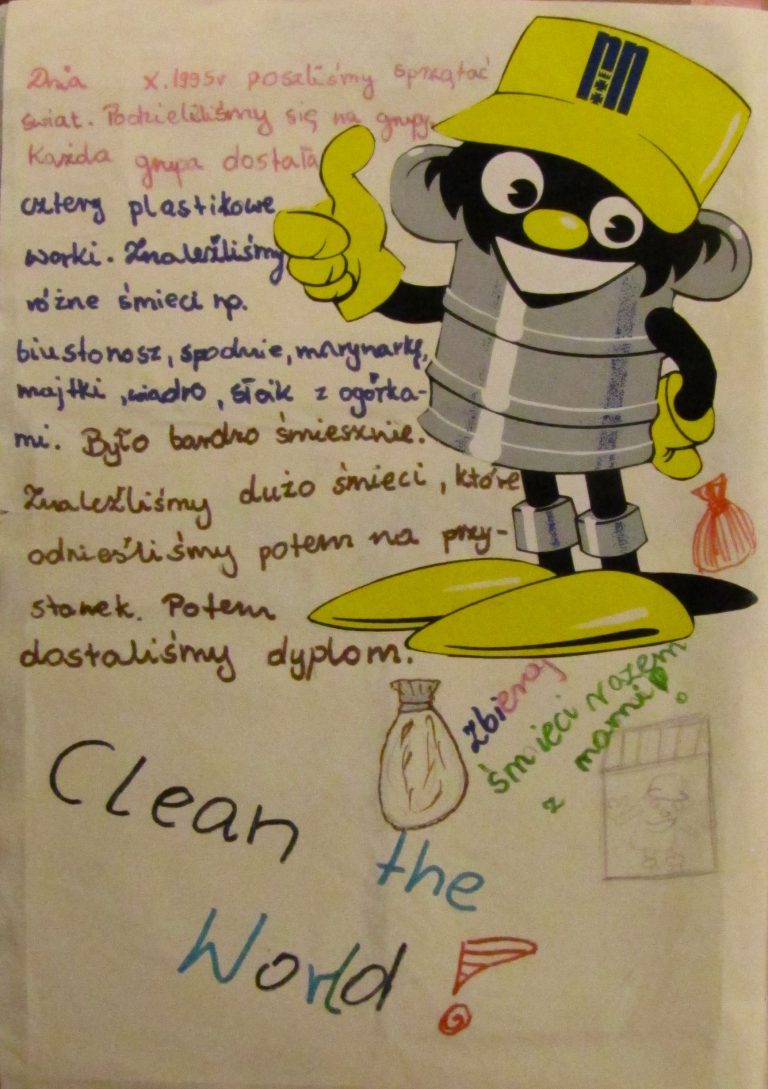 Dnia X.1995r poszliśmy sprzątać
świat. Podzieliliśmy się na grupy.
Każda grupa dostała
cztery plastikowe
worki. Znaleźliśmy
różne śmieci np.
biustonosz, spodnie, marynarkę,
majtki, wiadro, słoik z ogórka-
mi. Było bardzo śmiesznie.
Znaleźliśmy dużo śmieci, które
odnieśliśmy potem na przy-
stanek. Potem
dostaliśmy dyplom.
zbieraj
śmieci razem
z nami!
Clean
the
World!